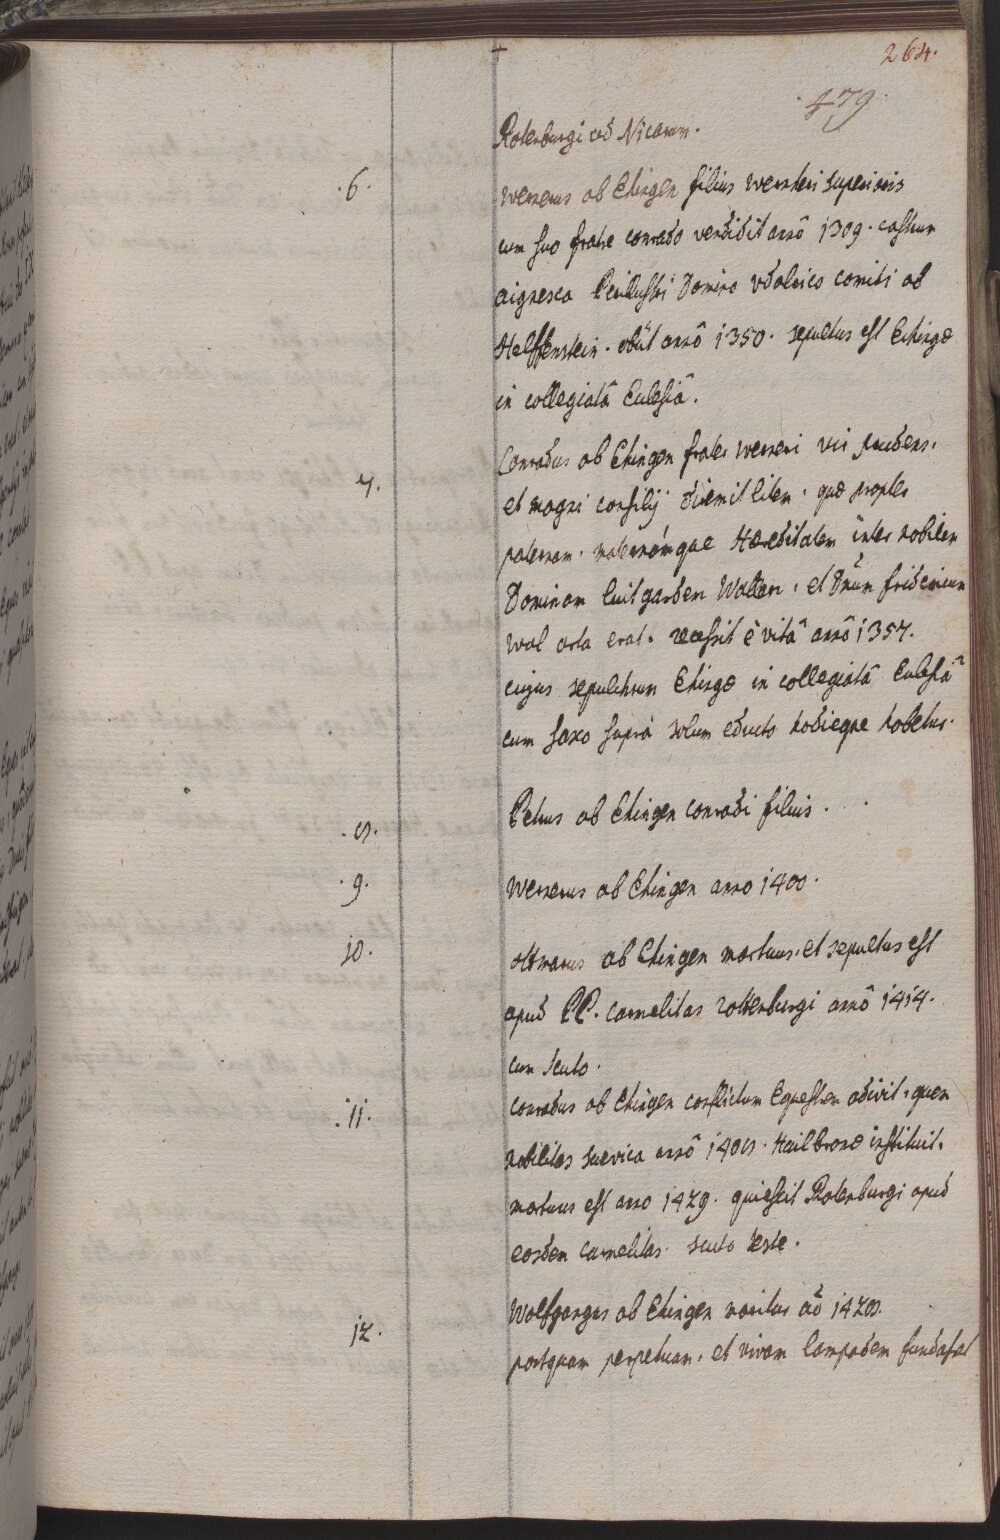 264.
479.
Rotenburgi ad Nicarum.
.6. Wernerus ab Ehingen filius Werneri superioris
cum suo fratre conrado vendidit annô 1309. castrum
aignesca Perillustri Domino Vdalrico comiti ab
Helffenstein. obÿt annô 1350. sepultus est Echingæ
in collegiatâ Ecclesiâ.
7. Conradus ab Ehingen frater werneri vir prudens,
et magni consilij diremit litem, quæ propter
paternam, maternámque Hæreditatem inter nobilem
Dominam Luitgarden Walten, et Dnum fridericum
Wal orta erat. recessit è vitâ annô 1357.
cujus sepulchrum Ehingæ in collegiatâ Ecclesiâ
cum saxo suprà solum educto hodieque habetur.
.8. Petrus ab Ehingen conradi filius.
.9. Wernerus ab Ehingen anno 1400.
10. ottmarus ab Ehingen mortuus, et sepultus est
apud PP. Carmelitas rottenburgi annô 1414.
cum scuto.
.11. Conradus ab Ehingen conflictum Equestrem adivit, quem
nobilitas suevica annô 1408. Hailbronæ instituit,
mortuus est anno 1429. quiescit Rotenburgi apud
eosdem carmelitas scuto teste.
12. Wolfgangus ab Ehingen maritus aõ 1428.
postquam perpetuam, et vivam lampadem fundasset